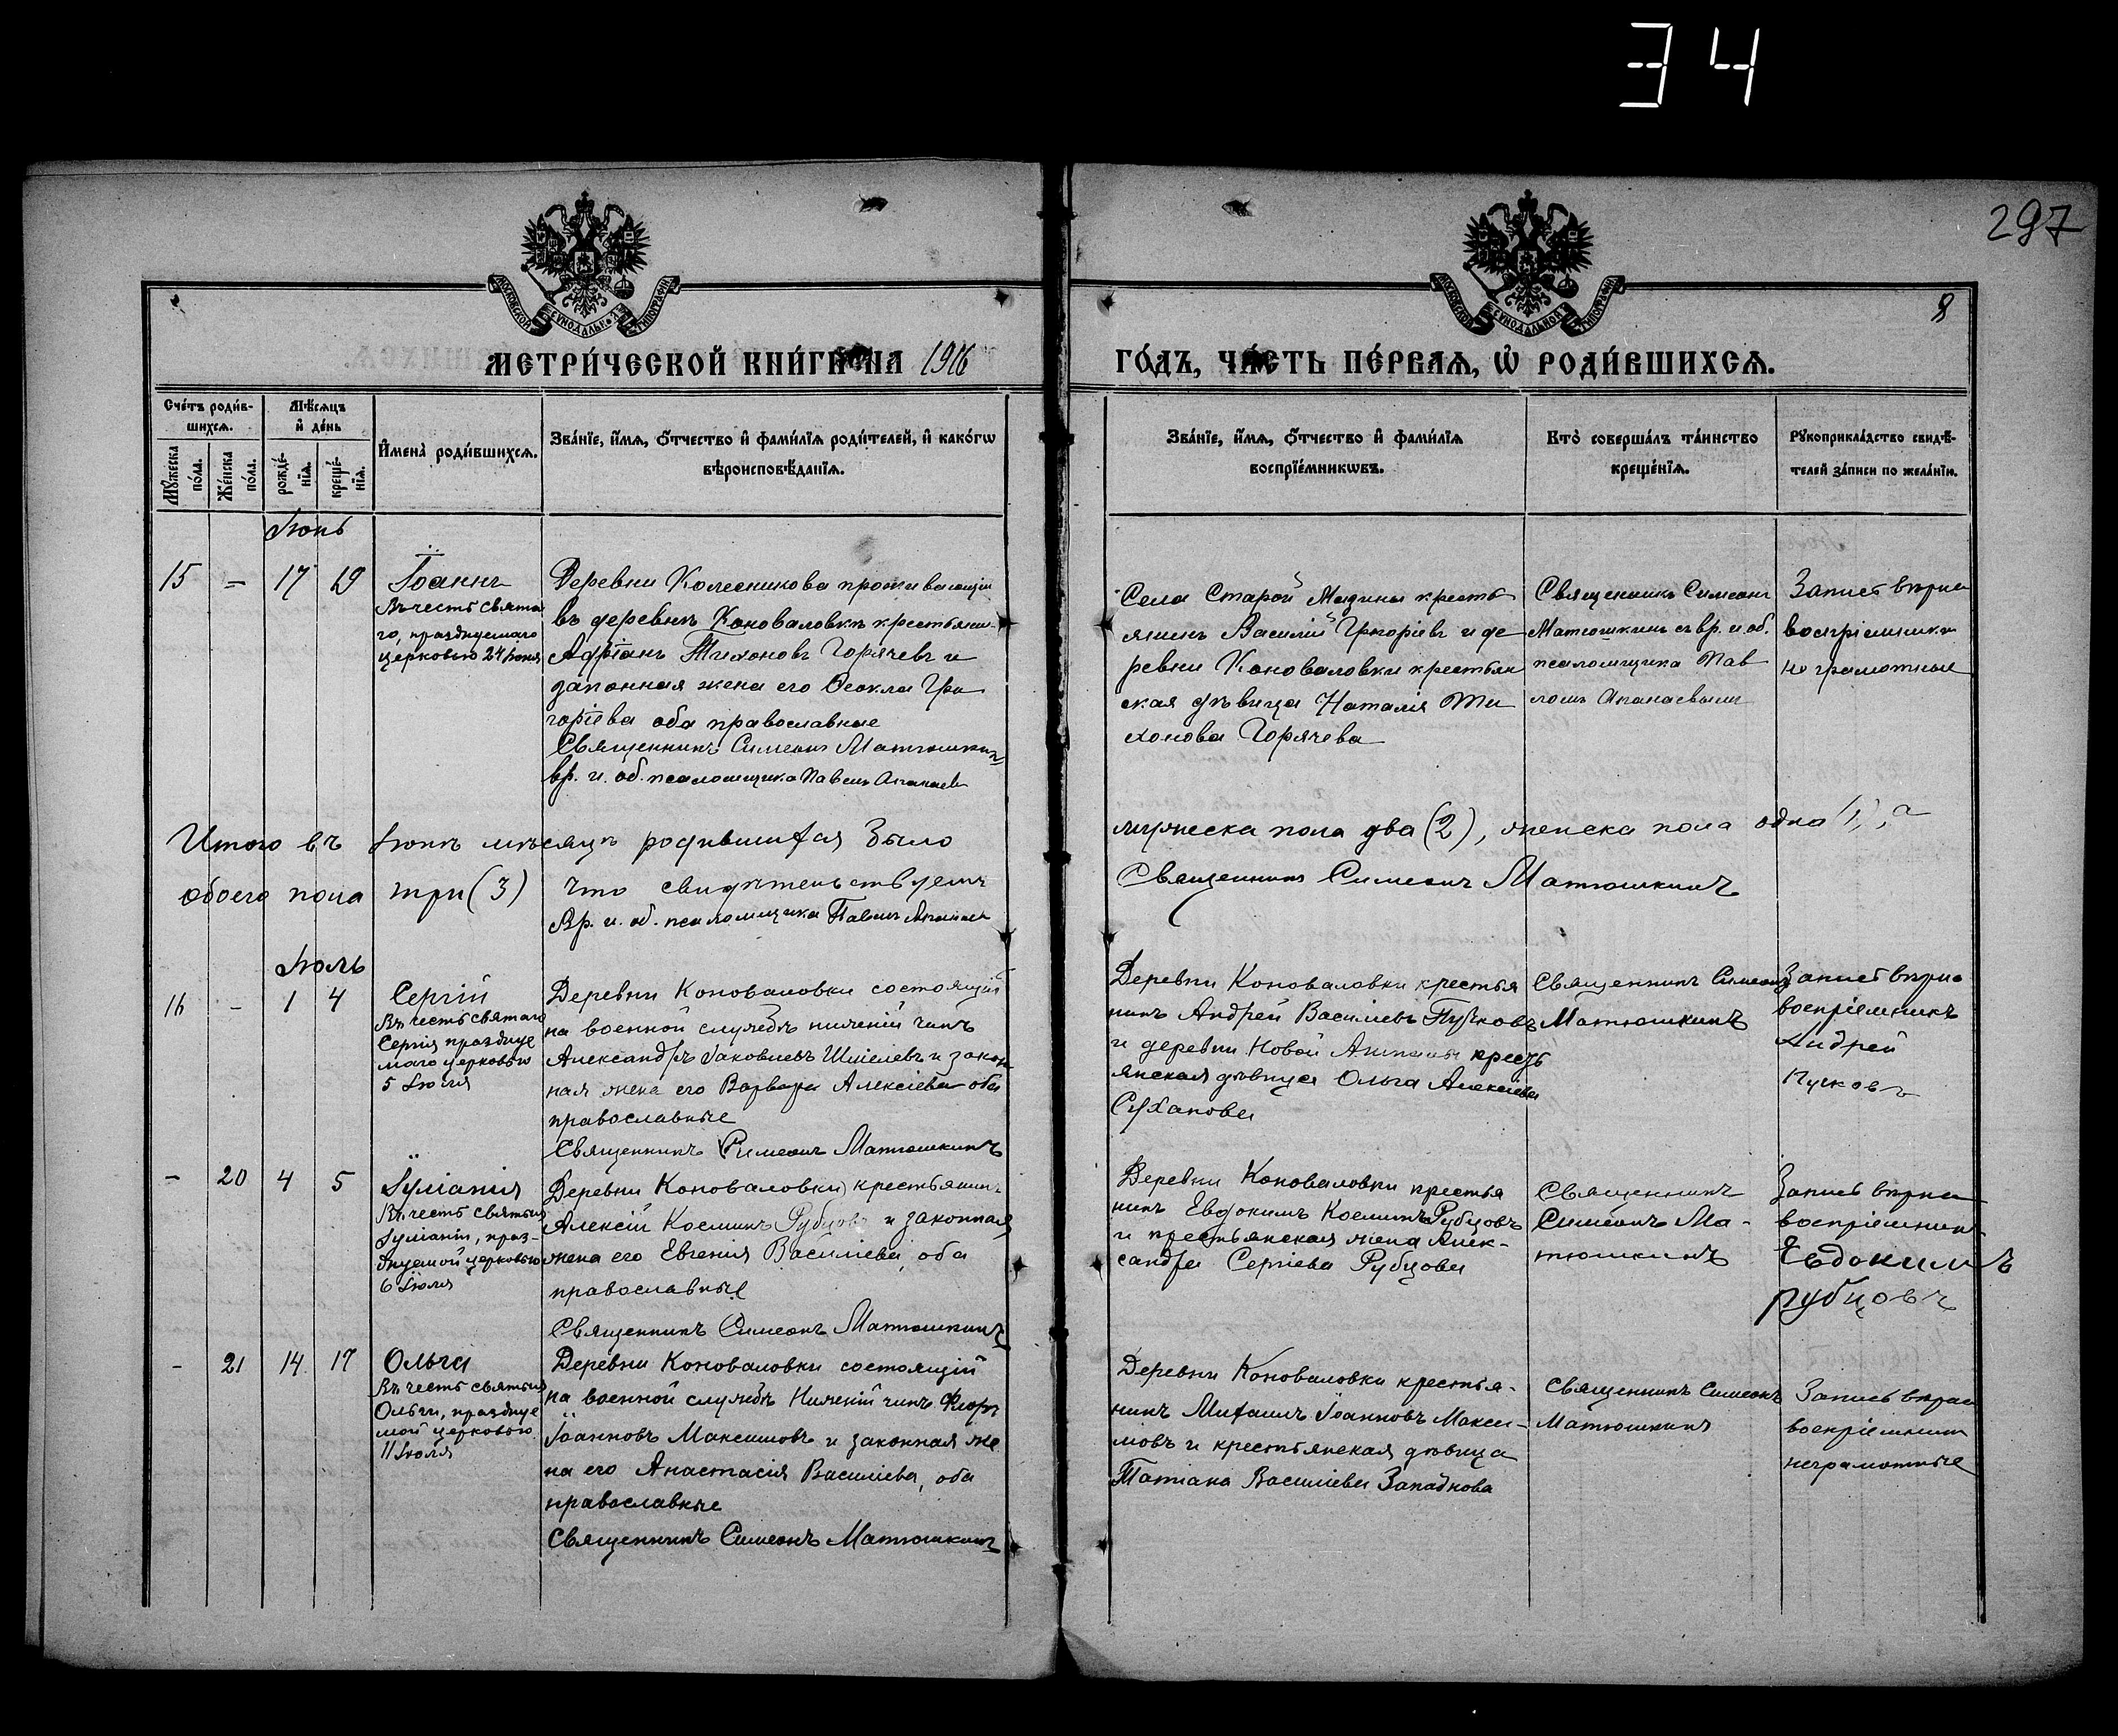 34
297
8
МОСКОВСКОЙ СѴНОДАЛЬНОЙ ТИПОГРАФІИ
МОСКОВСКОЙ СѴНОДАЛЬНОЙ ТИПОГРАФІИ
МЕТРИ́ЧЕСКОЙ КНИ́ГИ НА 1916
ГО́ДЪ, ЧА́СТЬ ПЕ́РВАѦ, Ѡ҆ РОДИ́ВШИХСѦ.
Сче́тъ роди́в-
шихсѧ.
Мѣ́сѧцъ
и҆ де́нь
Мꙋ́жеска
по́ла.
Же́нска
по́ла.
рожде́-
нїѧ.
креще́-
нїѧ.
И҆мена̀ роди́вшихсѧ.
Зва́нїе, и҆́мѧ, ѻ҆́тчество и҆ фами́лїѧ роди́телей, и҆ како́гѡ
вѣроисповѣ́данїѧ.
Зва́нїе, и҆́мѧ, ѻ҆́тчество и҆ фами́лїѧ
воспрїе́мникѡвъ.
Кто̀ соверша́лъ та́инство
креще́нїѧ.
Рꙋкоприкла́дство свидѣ́-
телей за́писи по жела́нїю.
Іюнь
15 - 17 19
Іоаннъ
Въ честь свята
го, празднуемаго
церковью 24 Іюня
Деревни Колесникова проживающій
въ деревнѣ Коноваловкѣ крестьянин
Адріанъ Тихоновъ Горячевъ и
законная жена его Ѳекла Гри
горіева оба православные
Священникъ Симеонъ Матюшкинъ
вр. и. об. псаломщика Павелъ Апанаев
Села Старой Мазины кресть
янинъ Василій Григоріевъ и де
ревни Коноваловки крестьян
ская дѣвица Наталія Ти
хонова Горячева
Священникъ Симеонъ
Матюшкинъ съ вр. и. об.
псаломщика Пав
ломъ Апанаевым
Запись вѣрна
воспріемники
не грамотные
Итого въ Іюнѣ мѣсяцѣ родившихся было
мужеска пола два (2), женска пола одна (1), а
обоего пола три (3) Что свидѣтельствуемъ
Священникъ Симеонъ Матюшкинъ
Вр. и. об. псаломщика Павелъ Апанаев
Іюль
16 - 1 4
Сергій
Въ честь святаго
Сергія праздные
маго церковью
5 Іюля
Деревни Коноваловки состоящій
на военной службѣ нижній чинъ
Александръ Іаковлевъ Шмелевъ и закон
ная жена его Варвара Алексіева оба
православные
Священникъ Симеонъ Матюшкинъ
Деревни Коноваловки крестья
нинъ Андрей Василіевъ Пучковъ
и деревни Новой крест
янская дѣвица Ольга Алексіева
Суханова
Священникъ Симеонъ
Матюшкинъ
Запись вѣрна
воспріемникъ
Андрей
Пучковъ
- 20 4 5
Іуліанія
Въ честь святыя
Іуліаніи, праз-
днуемой церковью
6 Іюля
Деревни Коноваловки крестьянинъ
Алексій Косминъ Рубцовъ и законная
жена его Евгенія Василіева, оба
православные
Священникъ Симеонъ Матюшкинъ
Деревни Коноваловки крестья
нинъ Евдокимъ Косминъ Рубцовъ
и крестьянская жена Алек-
сандра Сергіева Рубцова
Священникъ
Симеонъ Ма-
тюшкинъ
Запись вѣрна
воспріемникъ
Евдокимъ
рубцовъ
- 21 14 17
Ольга
Въ честь святыя
Ольги, праздные
мой церковью
11 Іюля
Деревни Коноваловки состоящій
на военной службѣ Нижній чинъ
Іоанновъ Максимовъ и законная же
на его Анастасія Василіева, оба
православные
Священникъ Симеонъ Матюшкинъ
Деревни Коноваловки крестья-
нинъ Михаилъ Іоанновъ Макси-
мовъ и крестьянская дѣвица
Татіана Василіева Западнова
Священникъ Симеонъ
Матюшкинъ
Запись вѣрна
воспріемники
неграмотные